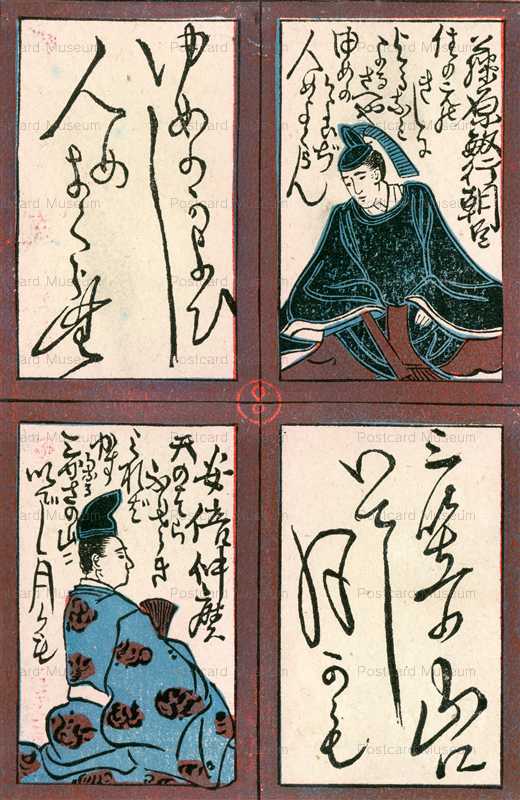 藤原敏行朝臣
住のえの
きしに
よるなみ
よるさへや
ゆめの
かよひぢ
人めよくらん
ゆめのかよひ
ぢ
人め
よくらむ
三笠の山に
いでし
月かも
安倍仲麿
天のはら
ふりさけ
みれば
かすが
なる
三かさの山に
いでし月かも
Postcard Museum